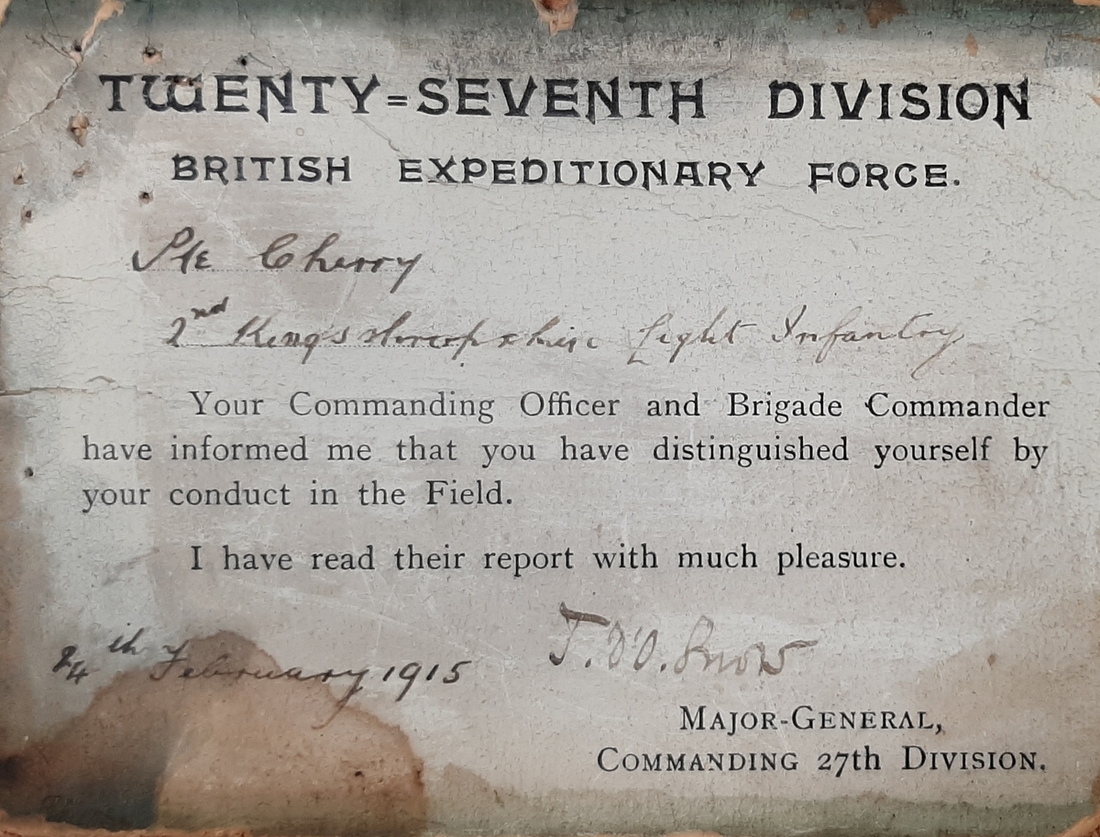 TWENTY=SEVENTH DIVISION
BRITISH EXPEDITIONARY FORCE.
Pte Cherry
2nd King's Shropshire Light Infantry
Your Commanding Officer and Brigade Commander
have informed me that you have distinguished yourself by
your conduct in the Field.
I have read their report with much pleasure.
24th February 1915
T. D'O. Snow
MAJOR-GENERAL,
COMMANDING 27th DIVISION.